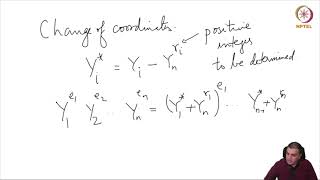 NPTEL
Change of coordinates.
Y_i^* = Y_i - Y_n^{r_i} positive integer to be determined
Y_1^{e_1} Y_2^{e_2} ... Y_n^{e_n} = (Y_1^* + Y_n^{r_1})^{e_1} ... Y_{n-1}^* + Y_n^{r_n}